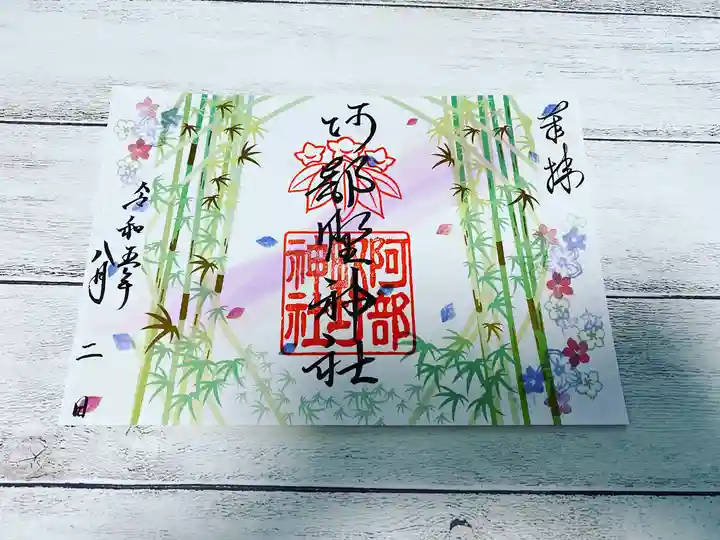 奉拝
阿部野神社
阿部野神社
令和五年
八月
二日